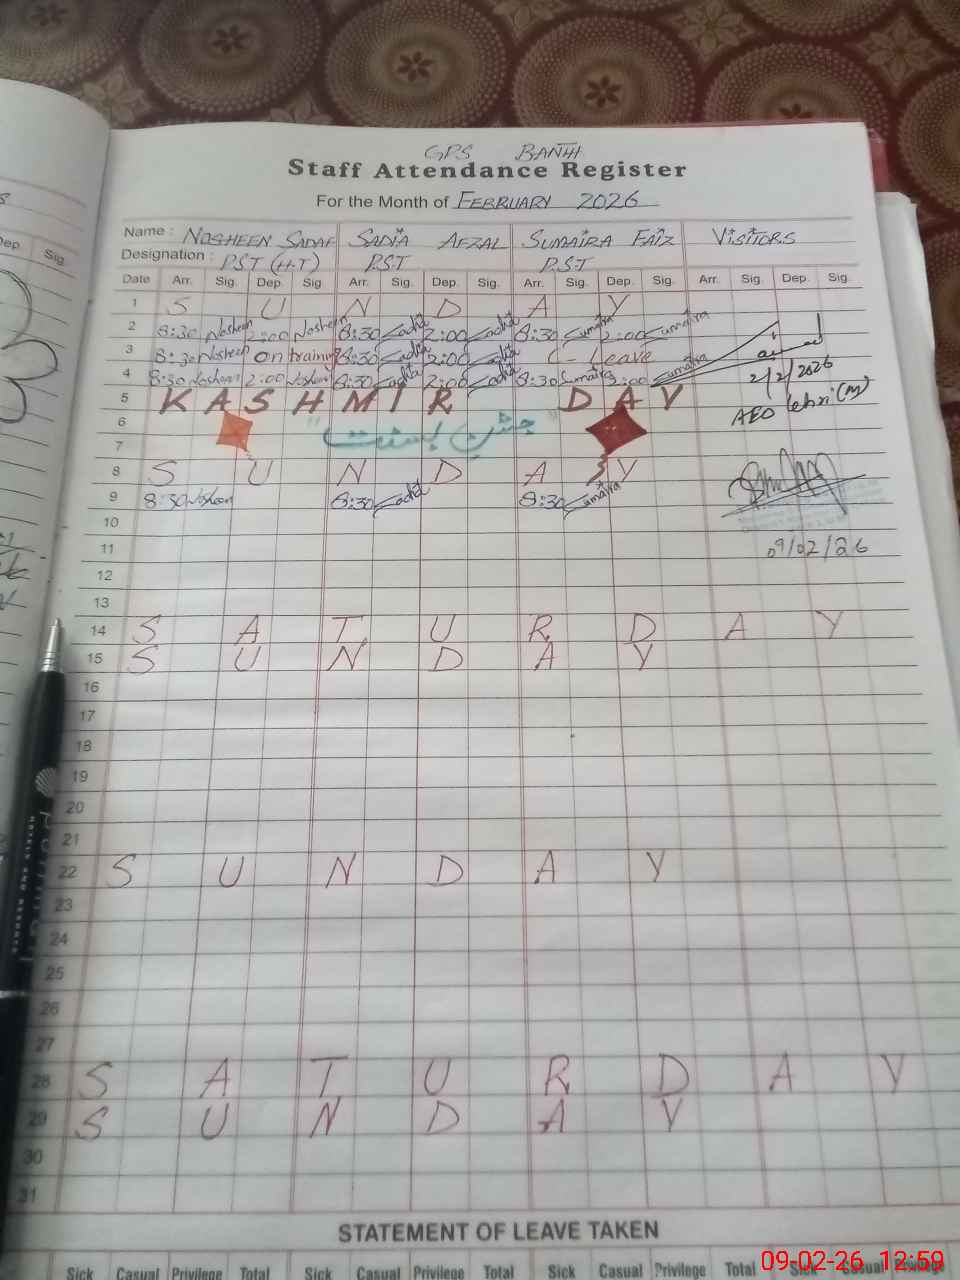 GPS BANHI
Staff Attendance Register
For the Month of FEBRUARY 2026
Name : NOSHEEN SADAF SADIA AFZAL SUMAIRA FAIZ VISITORS
Designation : PST (H.T) P.S.T P.S.T
Date Arr. Sig. Dep. Sig Arr. Sig. Dep. Sig. Arr. Sig. Dep. Sig. Arr. Sig. Dep. Sig.
1 S U N D A Y
2 8:30 Nosheen 2:00 Nosheen 8:30 Sadia 2:00 Sadia 8:30 Sumaira 2:00 Sumaira
3 8:30 Nosheen On training 8:30 Sadia 2:00 Sadia C - Leave
4 8:30 Nosheen 2:00 Nosheen 8:30 Sadia 2:00 Sadia 8:30 Sumaira 2:00 Sumaira
2/2/2026
5 K A S H M I R D A Y
AEO Lehri (M)
6 "جشنِ بسنت"
7
8 S U N D A Y
9 8:30 Nosheen 8:30 Sadia 8:30 Sumaira
10
11 09/02/26
12
13
14 S A T U R D A Y
15 S U N D A Y
16
17
18
19
20
21
22 S U N D A Y
23
24
25
26
27
28 S A T U R D A Y
29 S U N D A Y
30
31
STATEMENT OF LEAVE TAKEN
Sick Casual Privilege Total Sick Casual Privilege Total Sick Casual Privilege Total Sick Casual Privilege
09-02-26 12:59